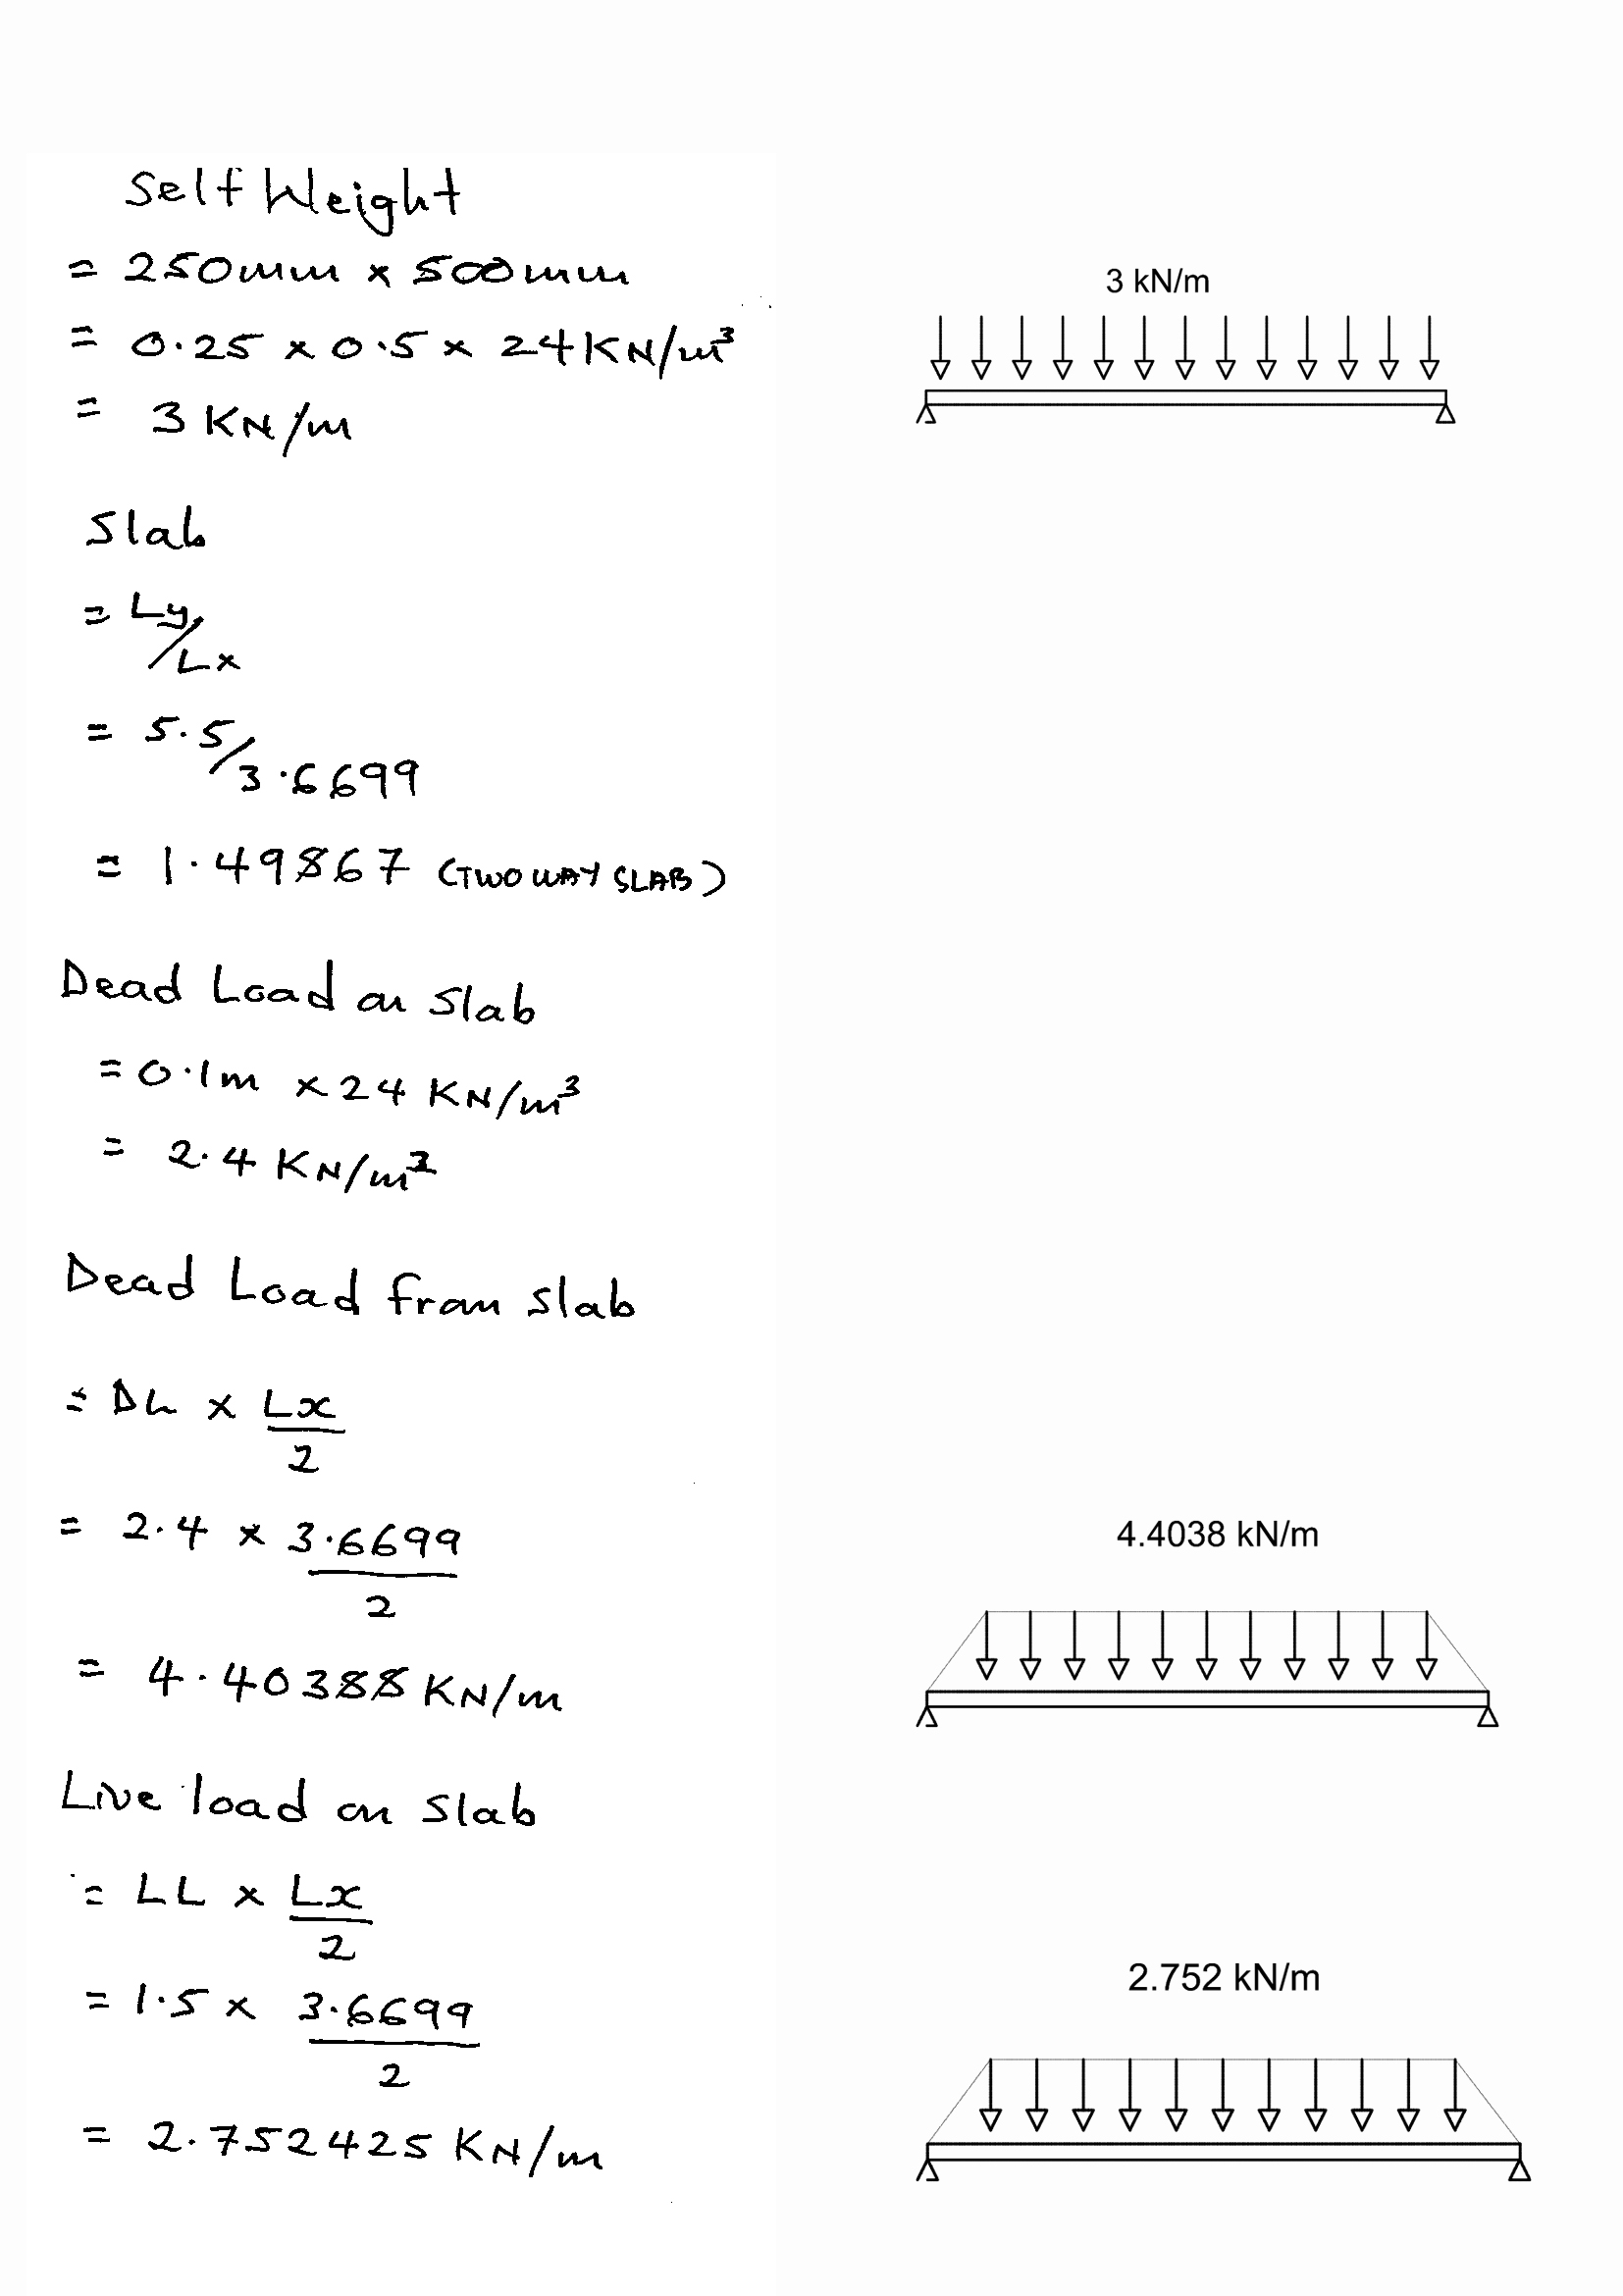 Self Weight
= 250mm x 500mm
= 0.25 x 0.5 x 24KN/m³
= 3 KN/m
3 kN/m
Slab
= Ly/Lx
= 5.5/3.6699
= 1.49867 (TWO WAY SLAB)
Dead Load on Slab
= 0.1m x 24 KN/m³
= 2.4 KN/m²
Dead Load from slab
= DL x Lx/2
= 2.4 x 3.6699/2
= 4.40388 KN/m
4.4038 kN/m
Live load on slab
= LL x Lx/2
= 1.5 x 3.6699/2
= 2.752425 KN/m
2.752 kN/m